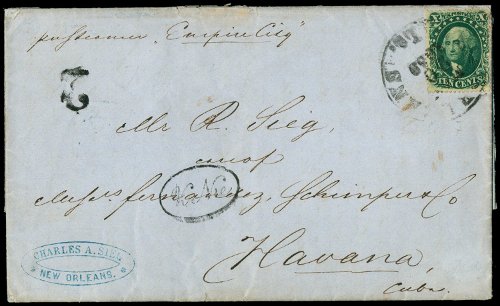 per steamer "Empire City"
TEN CENTS
2
Mr R. Sieg,
care of
Messrs Fernandez, Schimper & Co
Havana,
Cuba.
CHARLES A. SIEG
NEW ORLEANS.